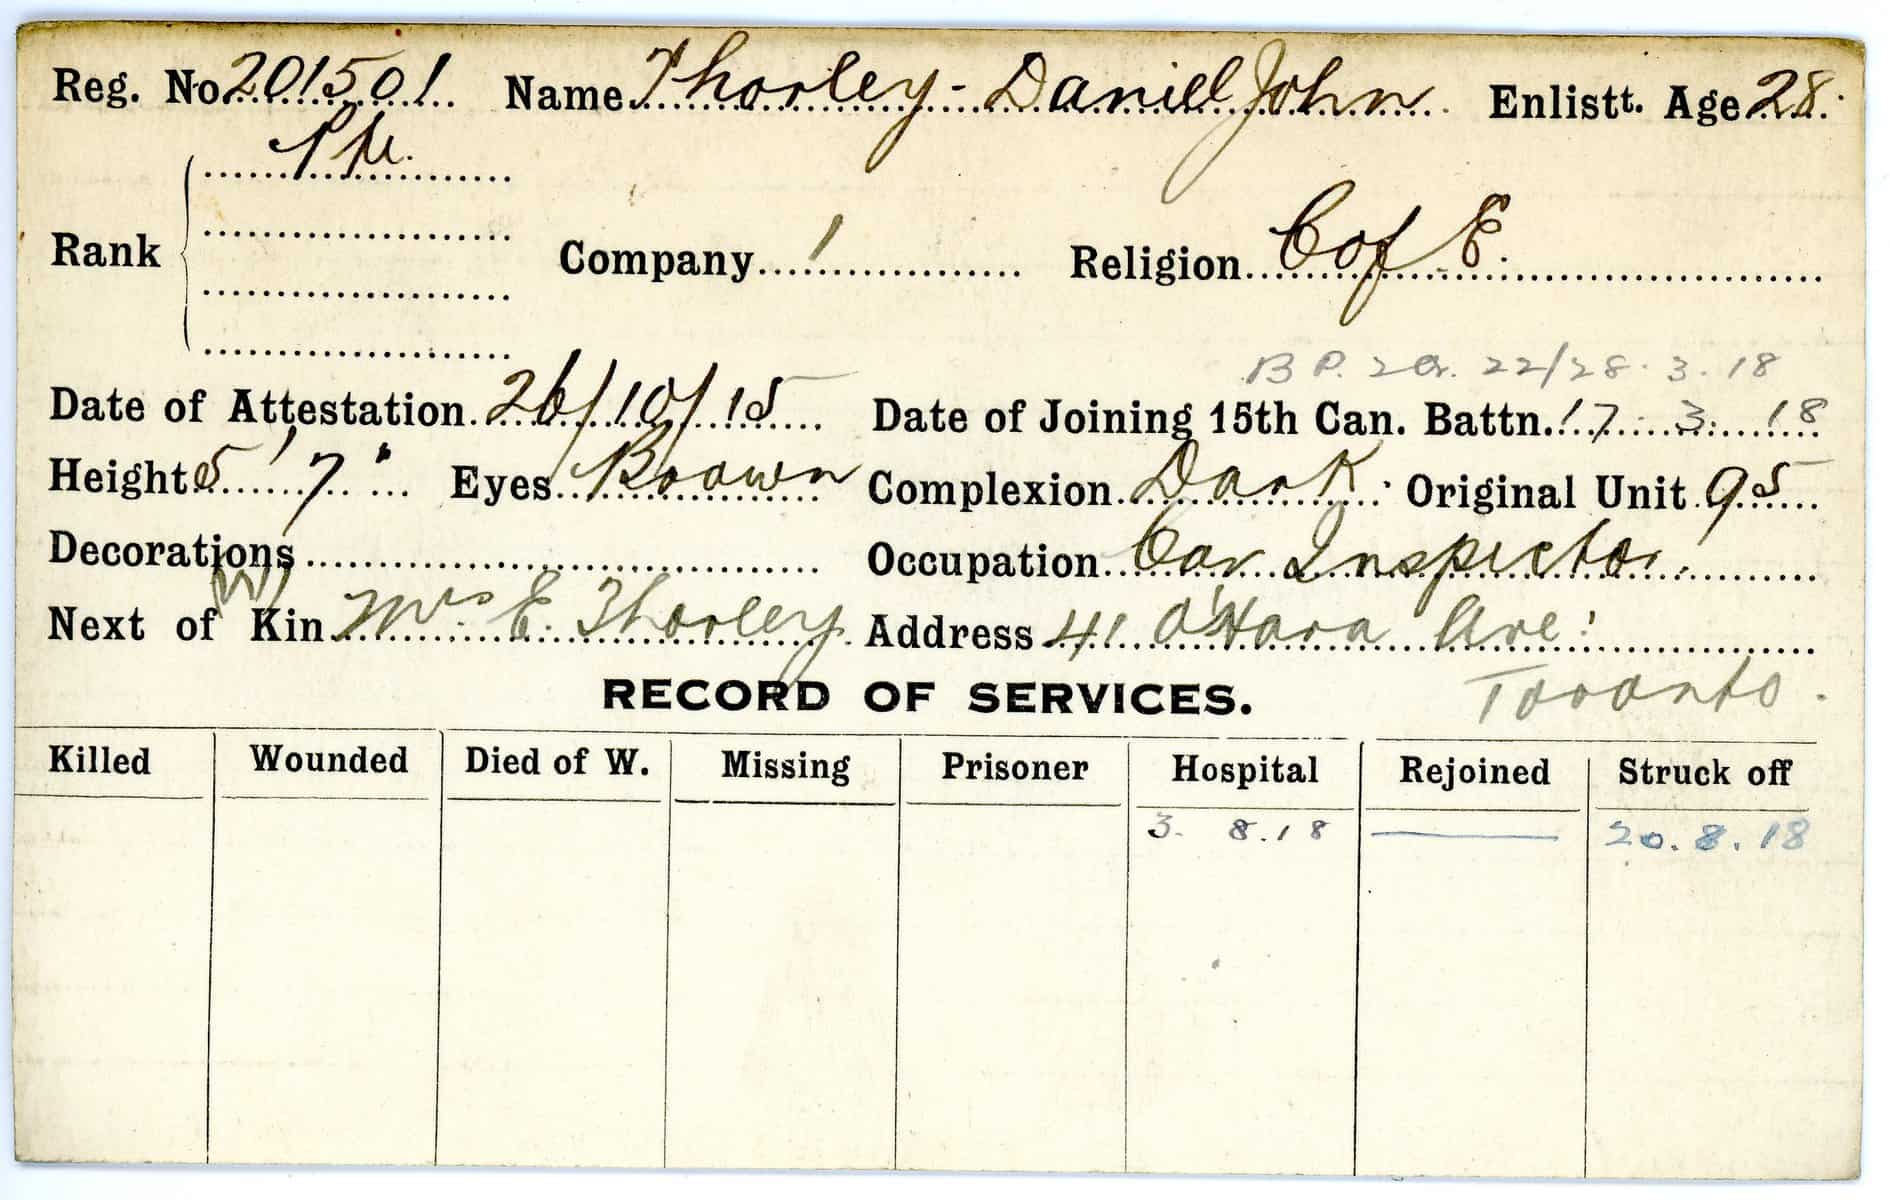 Reg. No 201501 Name Thorley - Daniel John Enlistt. Age 28.
Pte.
Rank Company 1 Religion C of E.
B P. 2 Or. 22/28.3.18
Date of Attestation 26/10/15 Date of Joining 15th Can. Battn. 17.3.18
Height 5' 7" Eyes Brown Complexion Dark Original Unit 95
Decorations Occupation Car Inspector
(W)
Next of Kin Mrs E. Thorley Address 41 O'Hara Ave:
Toronto.
RECORD OF SERVICES.
Killed Wounded Died of W. Missing Prisoner Hospital Rejoined Struck off
3. 8.18 — 20.8.18